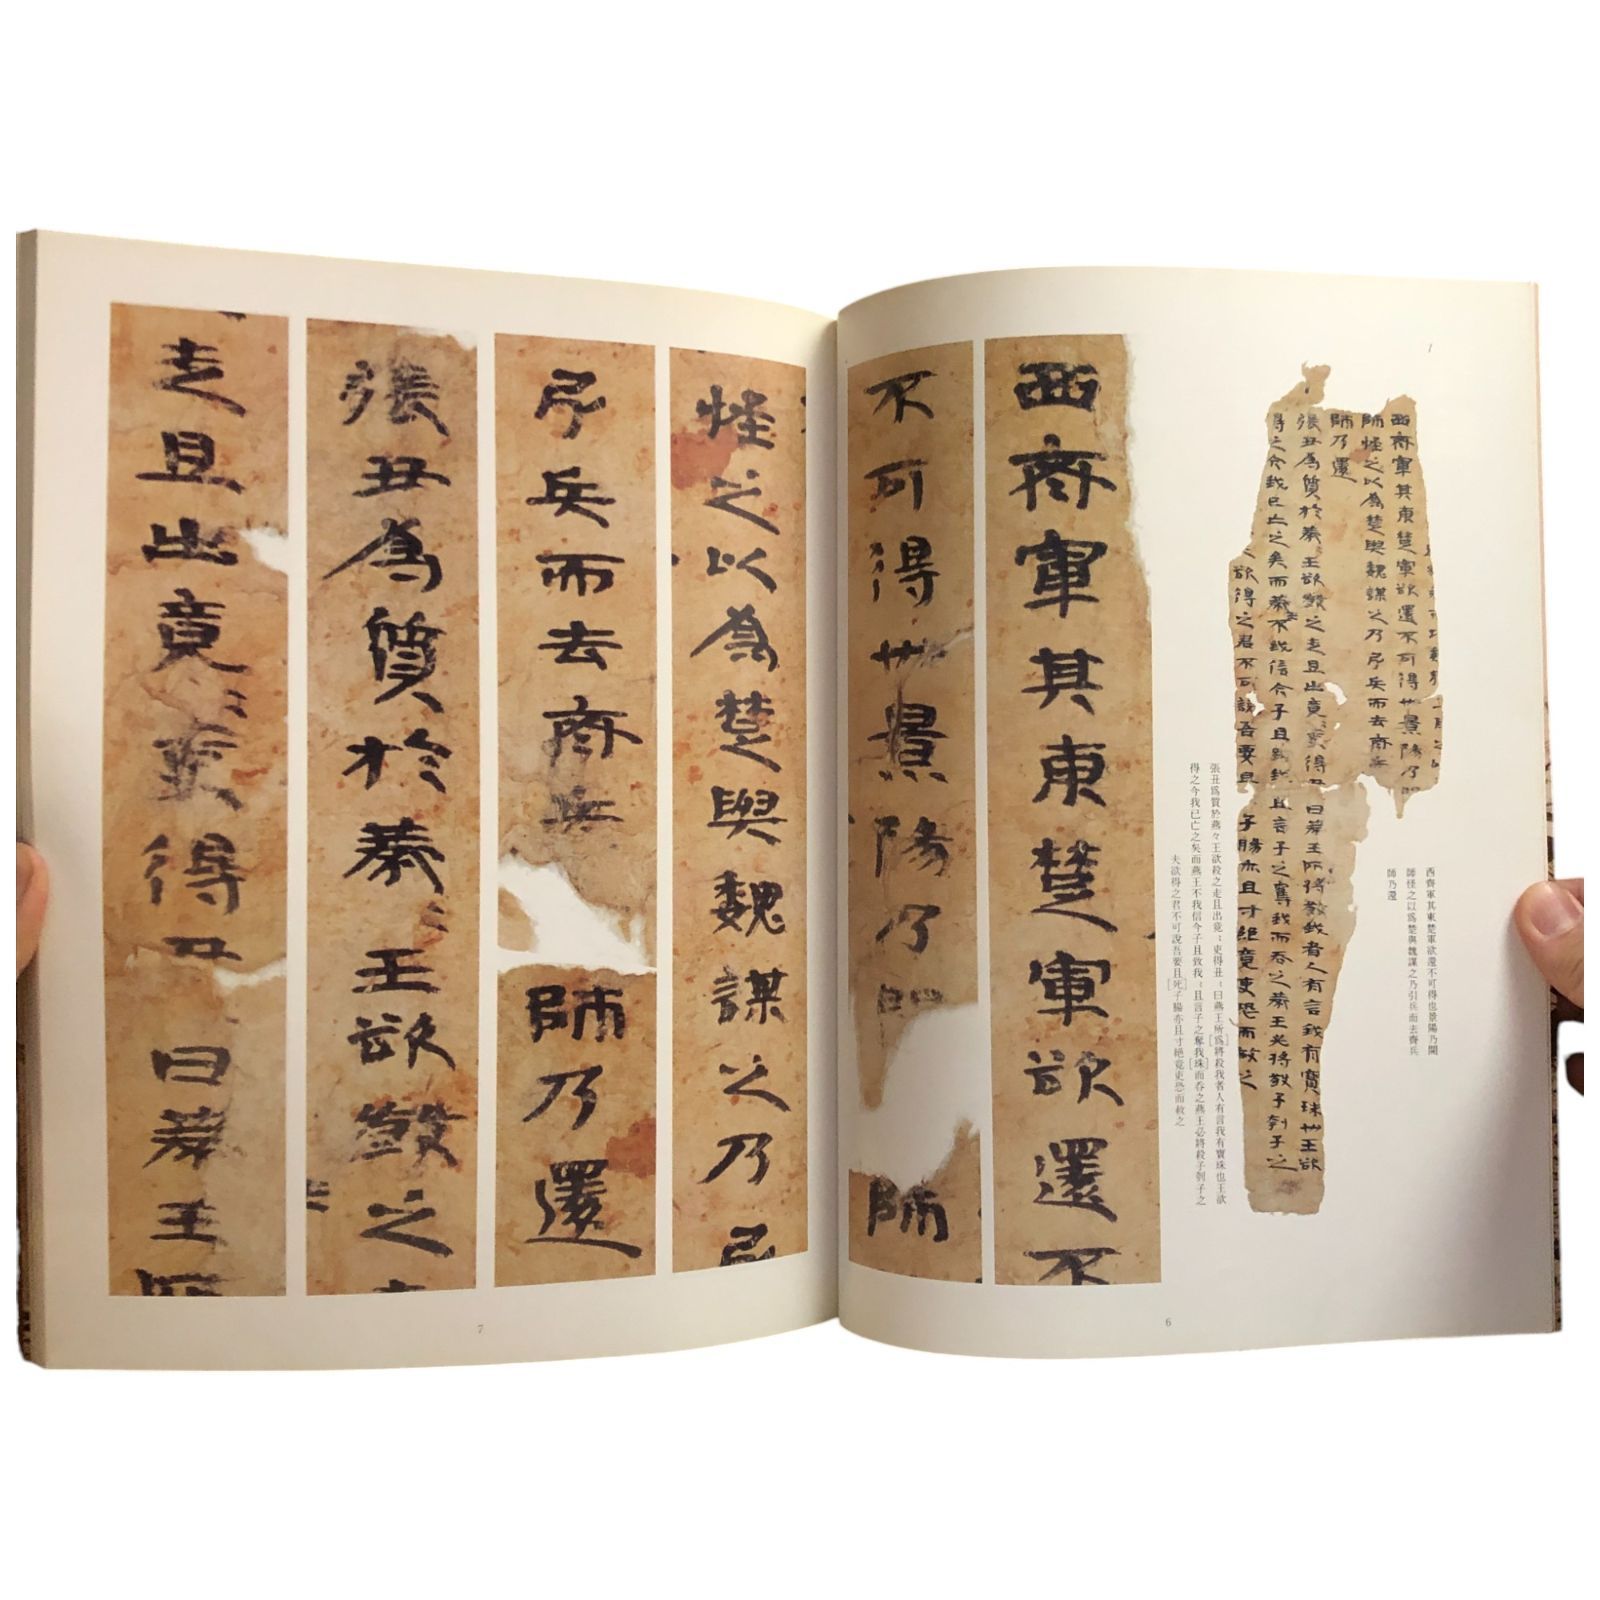 1
西齊軍其東楚軍欲還不可得也景陽乃開
師怪之以爲楚與魏謀之乃引兵而去齊兵
師乃還
張丑爲質於燕々王欲殺之走且出竟〻吏得丑〻曰燕王所[爲]將殺我者人有言我有寶珠也王欲
得之今我已亡之矣而燕王不我信今子且致我〻且言子之奪我[珠]而吞之燕王必將殺子刳子之
夫欲得之君不可說吾要且[死]子腸亦且寸絕竟吏恐而赦之
西齊軍其東楚軍欲還不
不可得也景陽乃開師
怪之以爲楚與魏謀之乃引
引兵而去齊兵師乃還
張丑爲質於燕〻王欲殺之走
走且出竟〻吏得丑〻曰燕王所
6
7